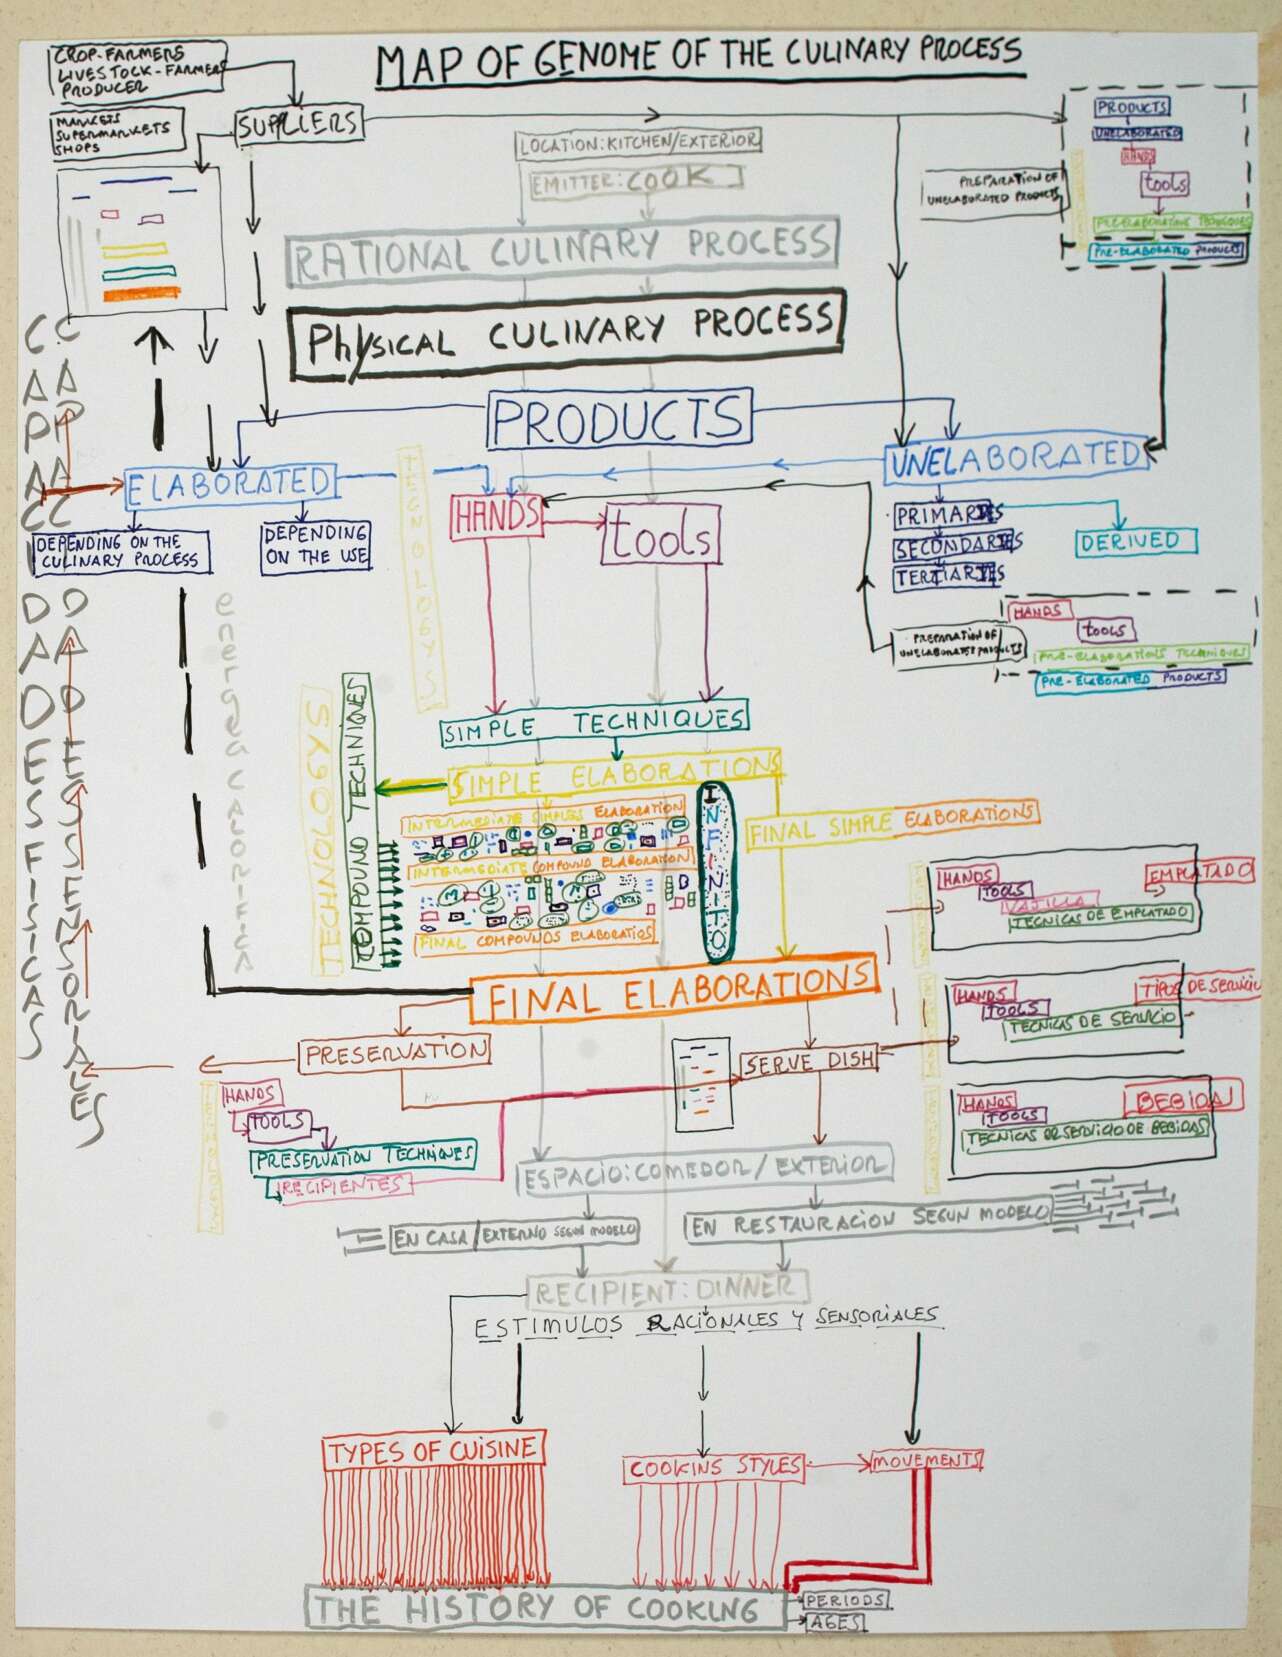 MAP OF GENOME OF THE CULINARY PROCESS
CROP-FARMERS
LIVESTOCK-FARMERS
PRODUCER
MARKETS
SUPERMARKETS
SHOPS
SUPPLIERS
LOCATION: KITCHEN/EXTERIOR
EMITTER: COOK
RATIONAL CULINARY PROCESS
PhYSICAL CULINARY PROCESS
PREPARATION OF
UNELABORATED PRODUCTS
PRODUCTS
UNELABORATED
HANDS
tools
PRE-ELABORATING TECHNIQUES
PRE-ELABORATED PRODUCTS
PRODUCTS
ELABORATED
UNELABORATED
DEPENDING ON THE
CULINARY PROCESS
DEPENDING
ON THE USE
TECNOLOGYS
HANDS
tools
PRIMARIES
SECONDARIES
TERTIARIES
DERIVED
PREPARATION OF
UNELABORATED PRODUCTS
HANDS
tools
PRE-ELABORATIONS TECHNIQUES
PRE-ELABORATED PRODUCTS
CAPACIDADES FISICAS
CAPACIDADES SENSORIALES
energia CALORIFICA
TECHNOLOGYS
COMPOUND TECHNIQUES
SIMPLE TECHNIQUES
SIMPLE ELABORATIONS
INTERMEDIATE SIMPLES ELABORATION
INTERMEDIATE COMPOUND ELABORATION
FINAL COMPOUNDS ELABORATIOS
INFINITO
FINAL SIMPLE ELABORATIONS
FINAL ELABORATIONS
HANDS
TOOLS
VAJILLA
TECNICAS DE EMPLATADO
EMPLATADO
HANDS
TOOLS
TECNICAS DE SERVICIO
TIPOS DE SERVICIO
HANDS
TOOLS
TECNICAS DE SERVICIO DE BEBIDAS
BEBIDAS
PRESERVATION
SERVE DISH
HANDS
TOOLS
PRESERVATION TECHNIQUES
RECIPIENTES
ESPACIO: COMEDOR / EXTERIOR
EN CASA / EXTERNO SEGUN MODELO
EN RESTAURACION SEGUN MODELO
RECIPIENT: DINNER
ESTIMULOS RACIONALES Y SENSORIALES
TYPES OF CUISINE
COOKINS STYLES
MOVEMENTS
THE HISTORY OF COOKING
PERIODS
AGES